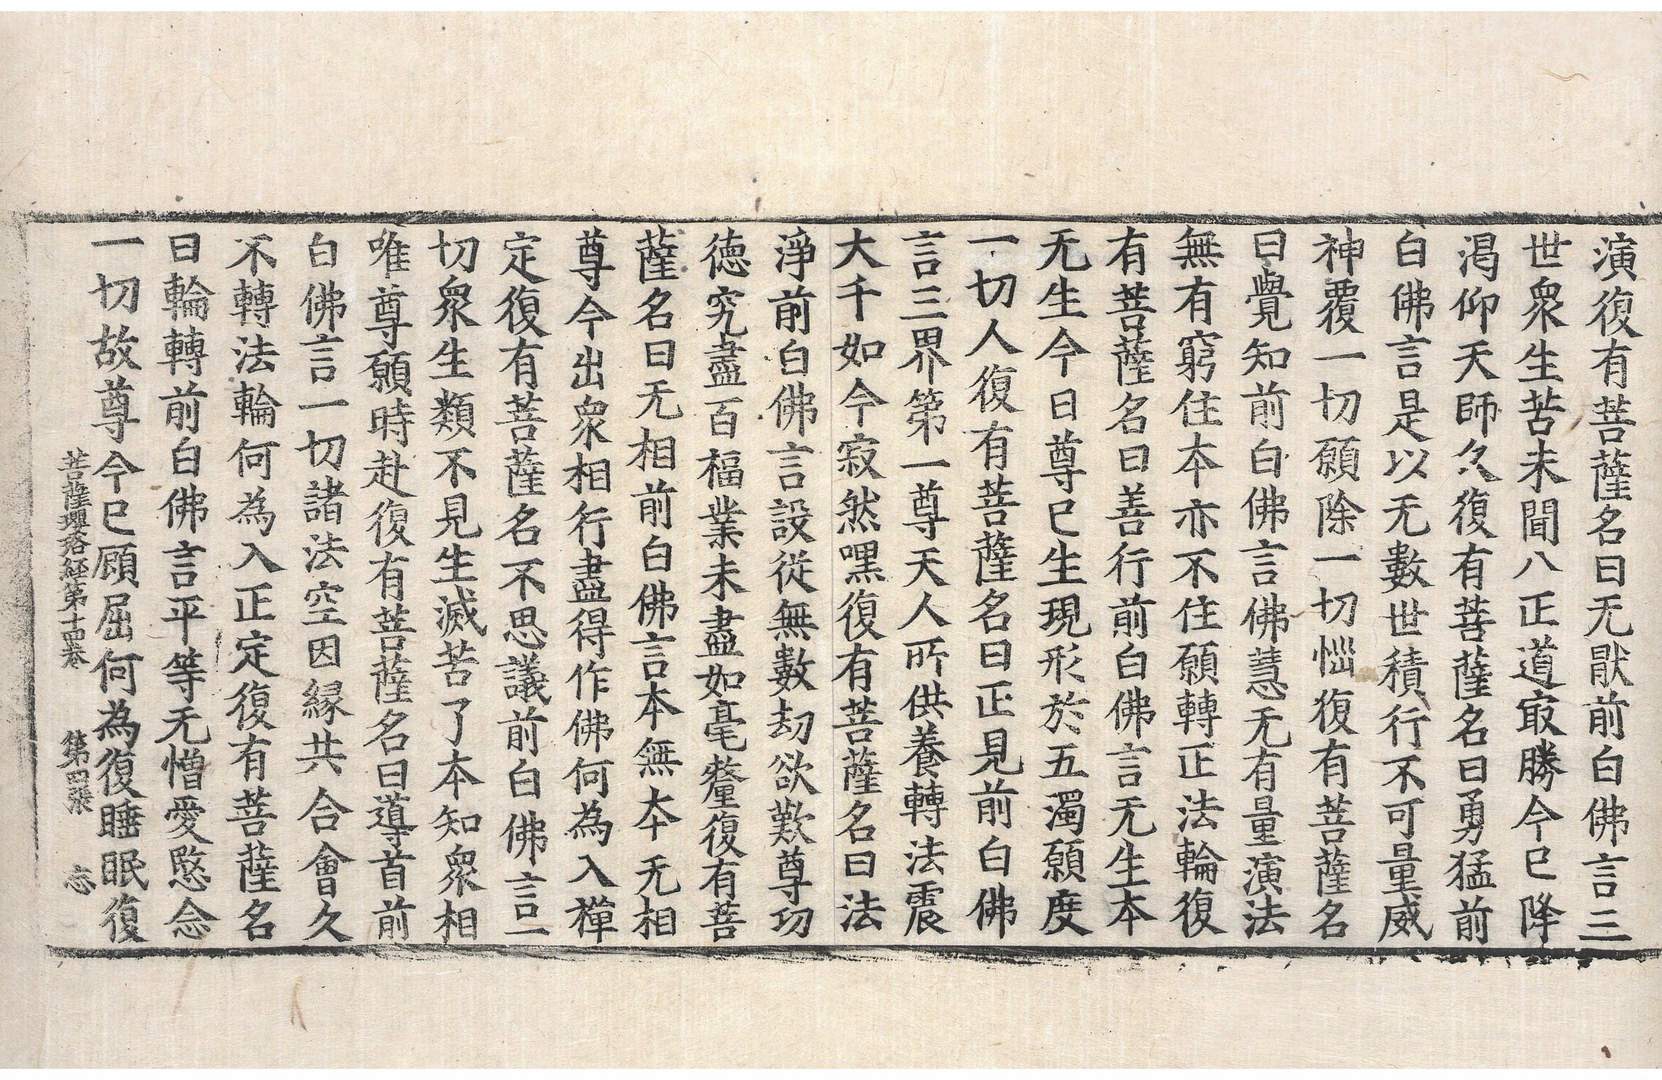 演復有菩薩名曰无猒前白佛言三
世衆生苦未聞八正道㝡勝今已降
渴仰天師久復有菩薩名曰勇猛前
白佛言是以无數世積行不可量威
神覆一切願除一切惱復有菩薩名
曰覺知前白佛言佛慧无有量演法
無有窮住本亦不住願轉正法輪復
有菩薩名曰善行前白佛言无生本
无生今日尊已生現形於五濁願度
一切人復有菩薩名曰正見前白佛
言三界第一尊天人所供養轉法震
大千如今寂然嘿復有菩薩名曰法
淨前白佛言設從無數劫欲歎尊功
德究盡百福業未盡如毫釐復有菩
薩名曰无相前白佛言本無本无相
尊今出衆相行盡得作佛何為入禪
定復有菩薩名不思議前白佛言一
切衆生類不見生滅苦了本知衆相
唯尊願時赴復有菩薩名曰導首前
白佛言一切諸法空因緣共合會久
不轉法輪何為入正定復有菩薩名
曰輪轉前白佛言平等无憎愛愍念
一切故尊今已顧屈何為復睡眠復
菩薩瓔珞經第十四卷 第四張 忘